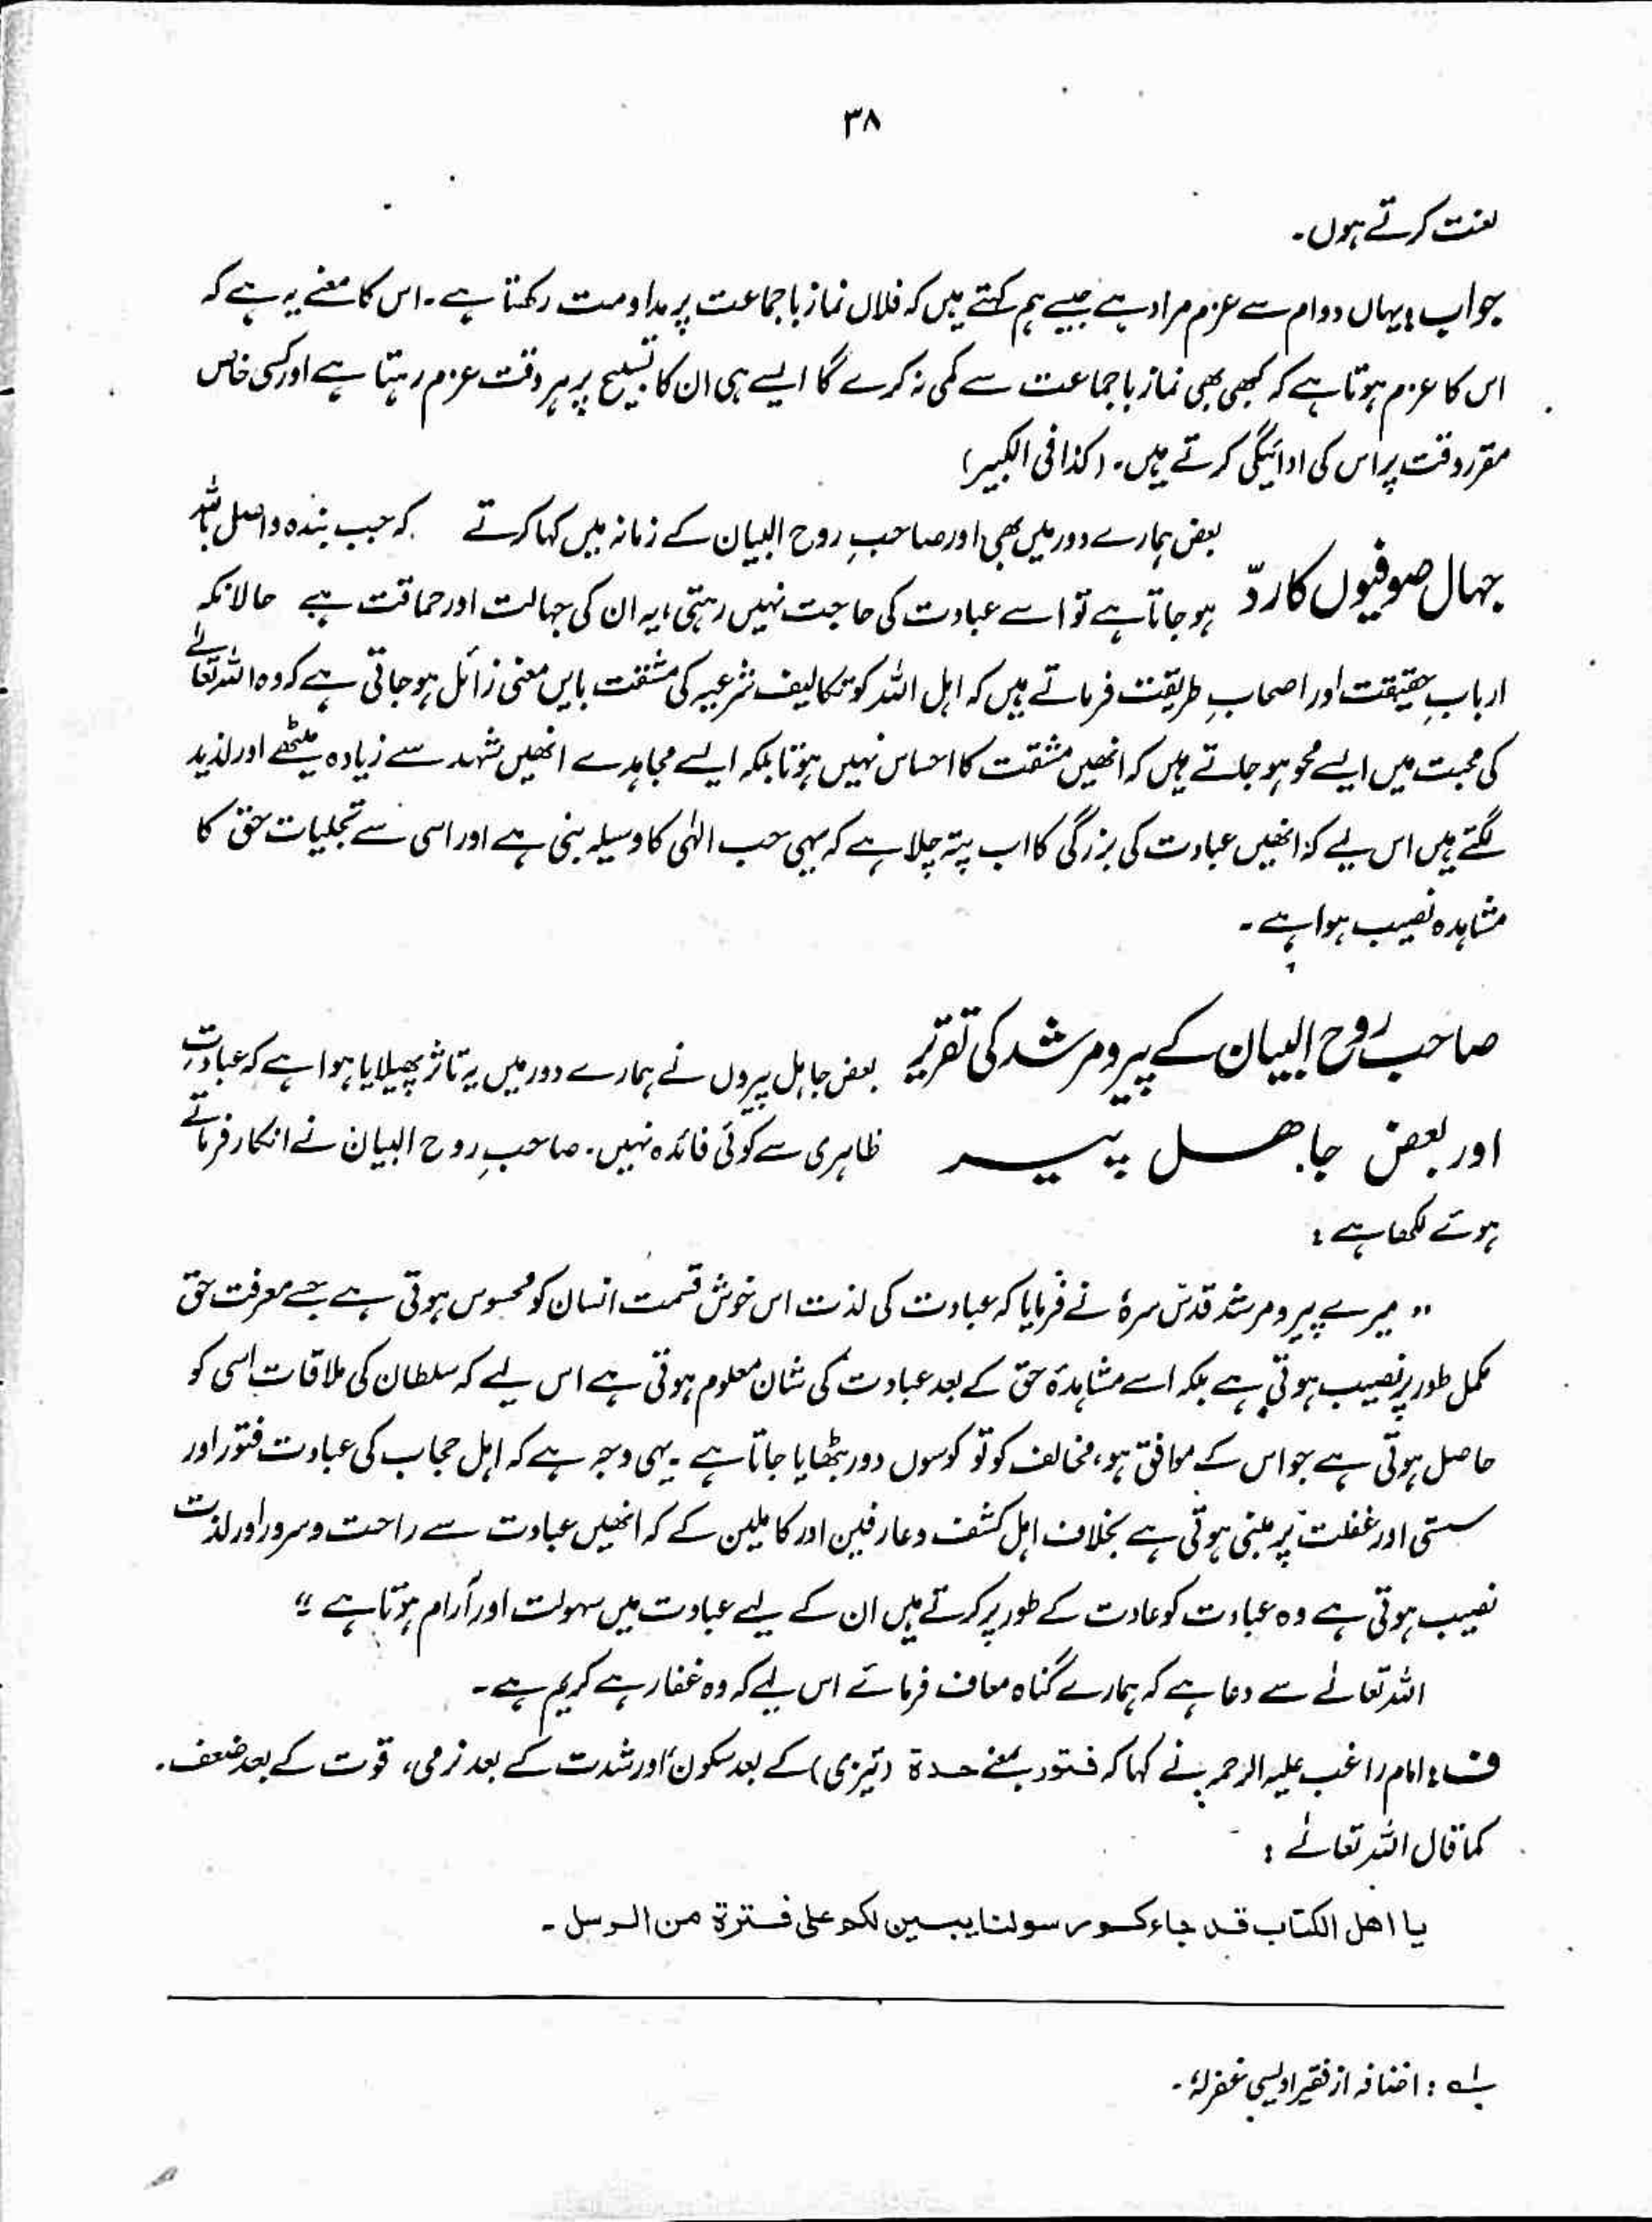 ۳۸
لعنت کرتے ہوں۔
جواب: یہاں دوام سے عزم مراد ہے جیسے ہم کہتے ہیں کہ فلاں نماز باجماعت پر مداومت رکھتا ہے۔ اس کا معنے یہ ہے کہ
اس کا عزم ہوتا ہے کہ کبھی بھی نماز باجماعت سے کمی نہ کرے گا ایسے ہی ان کا تسبیح پر ہر وقت عزم رہتا ہے اور کسی خاص
مقرر وقت پر اس کی ادائیگی کرتے ہیں۔ (کذا فی الکبیر)
جہال صوفیوں کا ردّ
بعض ہمارے دور میں بھی اور صاحبِ روح البیان کے زمانہ میں کہا کرتے کہ جب بندہ واصل باللہ
ہو جاتا ہے تو اسے عبادت کی حاجت نہیں رہتی، یہ ان کی جہالت اور حماقت ہے حالانکہ
اربابِ حقیقت اور اصحابِ طریقت فرماتے ہیں کہ اہل اللہ کو تکالیف شرعیہ کی مشقت بایں معنی زائل ہو جاتی ہے کہ وہ اللہ تعالےٰ
کی محبت میں ایسے محو ہو جاتے ہیں کہ انھیں مشقت کا احساس نہیں ہوتا بلکہ ایسے مجاہدے انھیں شہد سے زیادہ میٹھے اور لذیذ
لگتے ہیں اس لیے کہ انھیں عبادت کی بزرگی کا اب پتہ چلا ہے کہ یہی حب الٰہی کا وسیلہ بنی ہے اور اسی سے تجلیات حق کا
مشاہدہ نصیب ہوا ہے۔
صاحب روح البیان کے پیرومرشد کی تقریر
اور بعض جاھل پیر
بعض جاہل پیروں نے ہمارے دور میں یہ تاثر پھیلایا ہوا ہے کہ عبادت
ظاہری سے کوئی فائدہ نہیں۔ صاحبِ روح البیان نے انکار فرماتے
ہوئے لکھا ہے:
"میرے پیرومرشد قدّس سرہٗ نے فرمایا کہ عبادت کی لذت اس خوش قسمت انسان کو محسوس ہوتی ہے جسے معرفت حق
مکمل طور پر نصیب ہوتی ہے بلکہ اسے مشاہدۂ حق کے بعد عبادت کی شان معلوم ہوتی ہے اس لیے کہ سلطان کی ملاقات اسی کو
حاصل ہوتی ہے جو اس کے موافق ہو، مخالف کو تو کوسوں دور بٹھایا جاتا ہے۔ یہی وجہ ہے کہ اہل حجاب کی عبادت فتور اور
سستی اور غفلت پر مبنی ہوتی ہے بخلاف اہل کشف و عارفین اور کاملین کے کہ انھیں عبادت سے راحت و سرور اور لذت
نصیب ہوتی ہے وہ عبادت کو عادت کے طور پر کرتے ہیں ان کے لیے عبادت میں سہولت اور آرام ہوتا ہے"
اللہ تعالےٰ سے دعا ہے کہ ہمارے گناہ معاف فرمائے اس لیے کہ وہ غفار ہے کریم ہے۔
ف: امام راغب علیہ الرحمہ نے کہا کہ فتور بمعنے حدۃ (تیزی) کے بعد سکون اور شدت کے بعد نرمی، قوت کے بعد ضعف۔
کما قال اللہ تعالےٰ:
یا اھل الکتاب قد جاءکم رسولنا یبین لکم علی فترۃ من الرسل۔
لے: اضافہ از فقیر اویسی غفرلہٗ۔